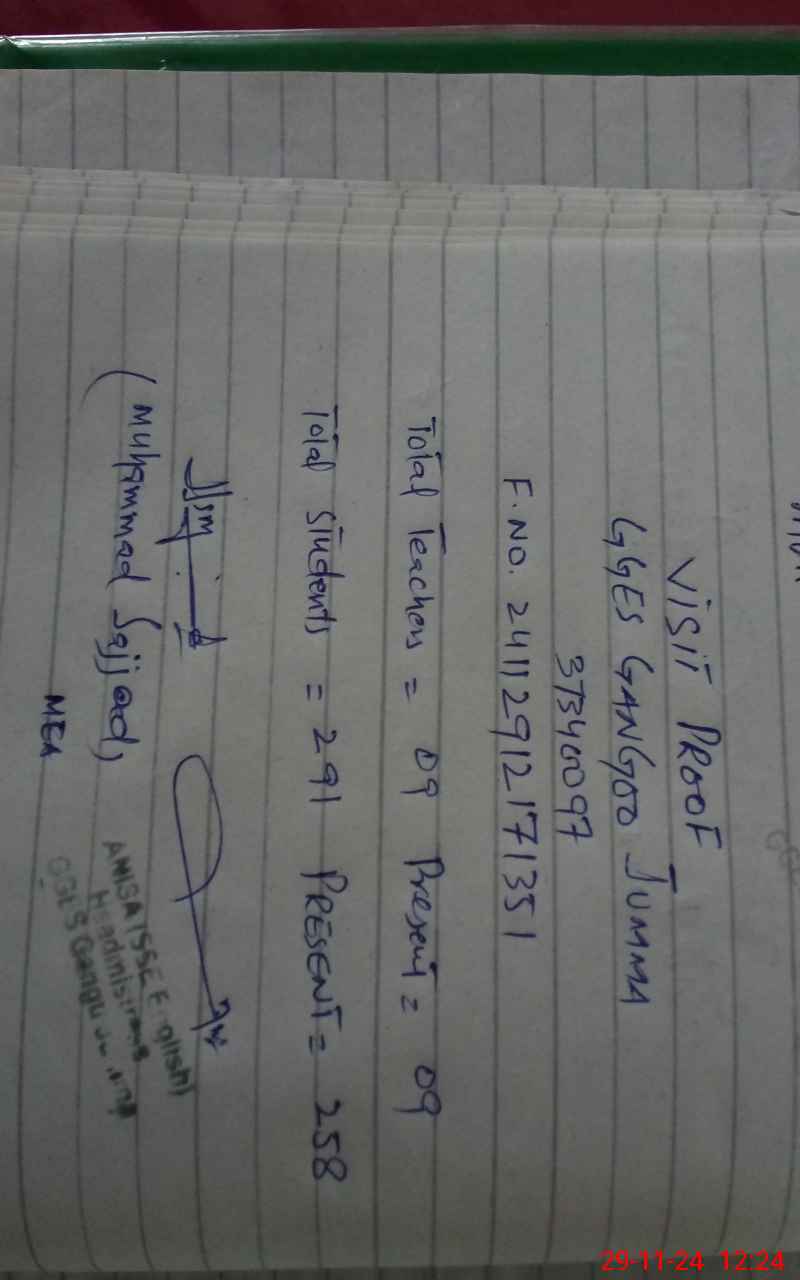 VISIT PROOF
GGES GANGOO JUMMA
37340097
F.NO. 24112912171351
Total Teachers = 09 Present = 09
Total Students = 291 PRESENT = 258
(Muhammad Sajjad)
MEA
ANISA ISSE English)
Headmistress
GGES
29-11-24 12:24